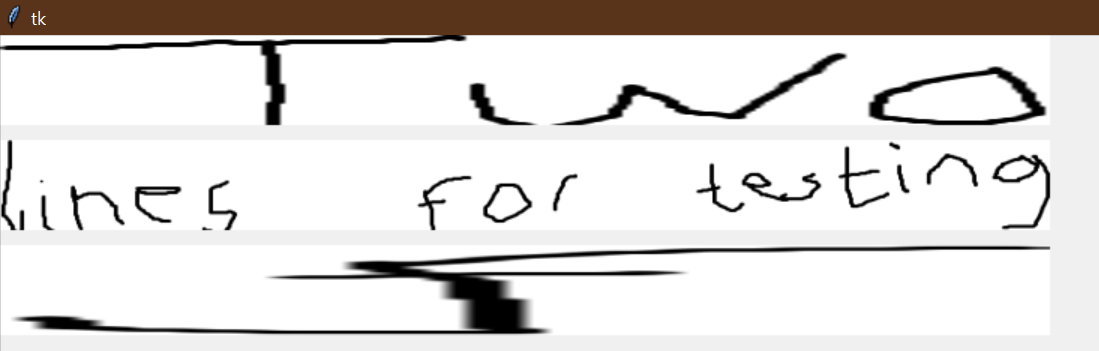 tk
Two
lines for testing